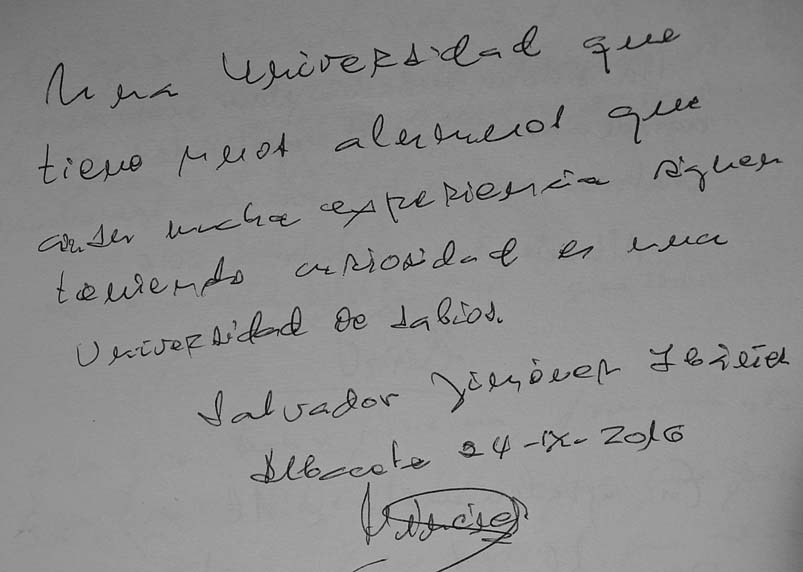 Una Universidad que
tiene unos alumnos que
con su mucha experiencia siguen
teniendo curiosidad es una
Universidad de sabios.
Salvador Jiménez Ibáñez
Albacete 24-IX-2016